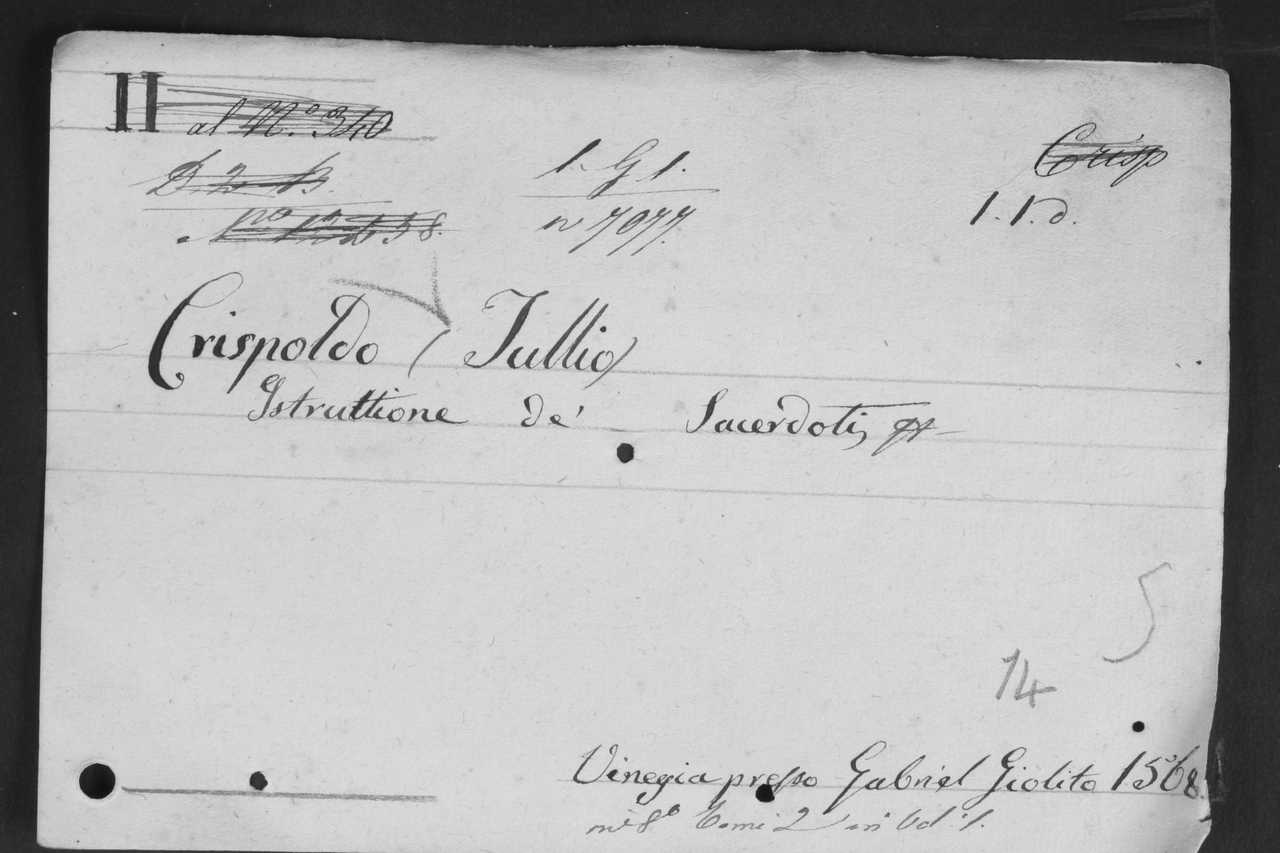 II al N.º 340
D 2 B.
1. G 1.
Crisp
1. 1. d.
n 7977.
Crispoldo (Tullio)
Istruttione de' Sacerdoti,
5
14
Vinegia presso Gabriel Giolito 1568.
in 8º Tomi 2 in Vol: 1.